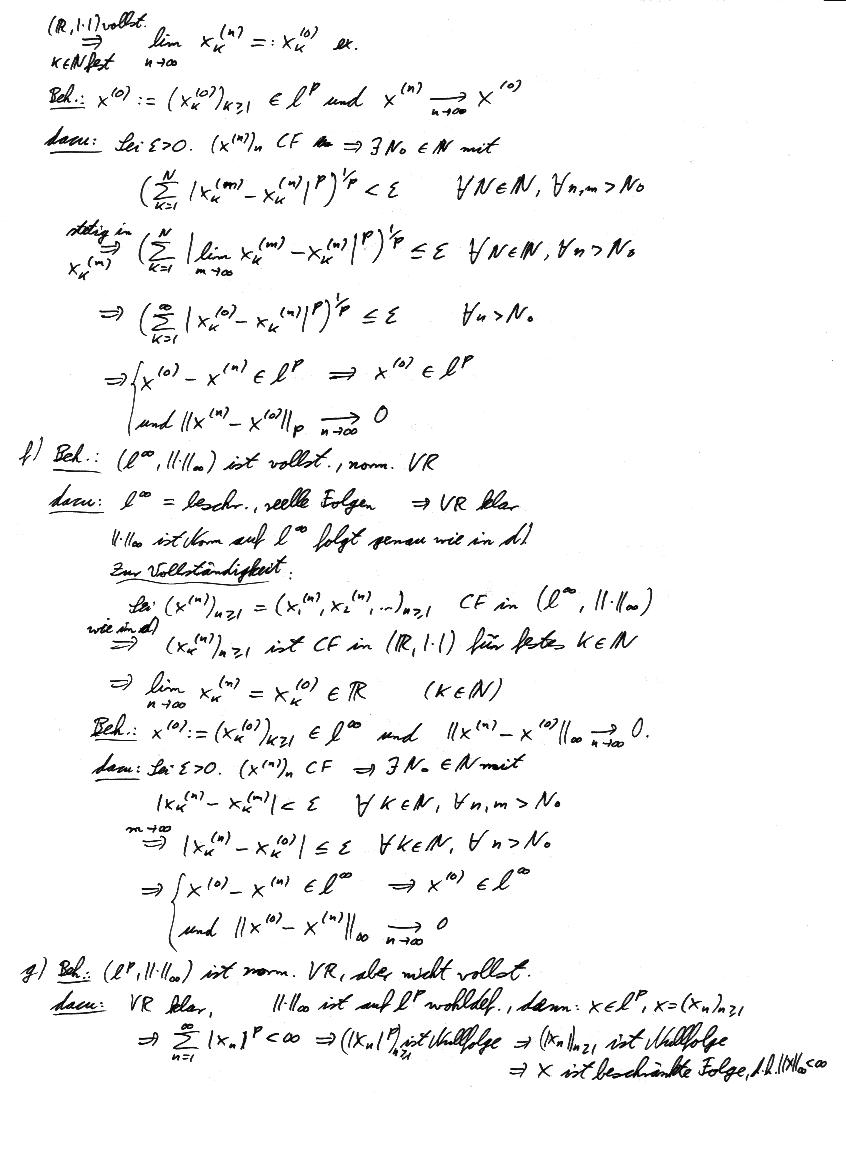 (ℝ,|·|) vollst.
⇒ lim_{n→∞} x_k^{(n)} =: x_k^{(0)} ex.
k∈ℕ fest
Beh.: x^{(0)} := (x_k^{(0)})_{k≥1} ∈ l^p und x^{(n)} →_{n→∞} x^{(0)}
dazu: Sei ε>0. (x^{(n)})_n CF ⇒ ∃ N_0 ∈ ℕ mit
(∑_{k=1}^{N} |x_k^{(m)} − x_k^{(n)}|^p)^{1/p} < ε ∀N∈ℕ, ∀n,m > N_0
stetig in x_k^{(m)} ⇒ (∑_{k=1}^{N} |lim_{m→∞} x_k^{(m)} − x_k^{(n)}|^p)^{1/p} ≤ ε ∀N∈ℕ, ∀n > N_0
⇒ (∑_{k=1}^{∞} |x_k^{(0)} − x_k^{(n)}|^p)^{1/p} ≤ ε ∀n > N_0
⇒ { x^{(0)} − x^{(n)} ∈ l^p ⇒ x^{(0)} ∈ l^p
und ||x^{(n)} − x^{(0)}||_p →_{n→∞} 0
f) Beh.: (l^∞, ||·||_∞) ist vollst., norm. VR
dazu: l^∞ = beschr., reelle Folgen ⇒ VR klar
||·||_∞ ist Norm auf l^∞ folgt genau wie in d)
Zur Vollständigkeit:
Sei (x^{(n)})_{n≥1} = (x_1^{(n)}, x_2^{(n)}, ...)_{n≥1} CF in (l^∞, ||·||_∞)
wie in d) ⇒ (x_k^{(n)})_{n≥1} ist CF in (ℝ,|·|) für festes k∈ℕ
⇒ lim_{n→∞} x_k^{(n)} = x_k^{(0)} ∈ ℝ (k∈ℕ)
Beh.: x^{(0)} := (x_k^{(0)})_{k≥1} ∈ l^∞ und ||x^{(n)} − x^{(0)}||_∞ →_{n→∞} 0.
dazu: Sei ε>0. (x^{(n)})_n CF ⇒ ∃ N_0 ∈ ℕ mit
|x_k^{(n)} − x_k^{(m)}| < ε ∀k∈ℕ, ∀n,m > N_0
m→∞ ⇒ |x_k^{(n)} − x_k^{(0)}| ≤ ε ∀k∈ℕ, ∀n > N_0
⇒ { x^{(0)} − x^{(n)} ∈ l^∞ ⇒ x^{(0)} ∈ l^∞
und ||x^{(0)} − x^{(n)}||_∞ →_{n→∞} 0
g) Beh.: (l^p, ||·||_∞) ist norm. VR, aber nicht vollst.
dazu: VR klar, ||·||_∞ ist auf l^p wohldef., denn: x∈l^p, x=(x_n)_{n≥1}
⇒ ∑_{n=1}^{∞} |x_n|^p < ∞ ⇒ (|x_n|^p)_{n≥1} ist Nullfolge ⇒ (|x_n|)_{n≥1} ist Nullfolge
⇒ x ist beschränkte Folge, d.h. ||x||_∞ < ∞